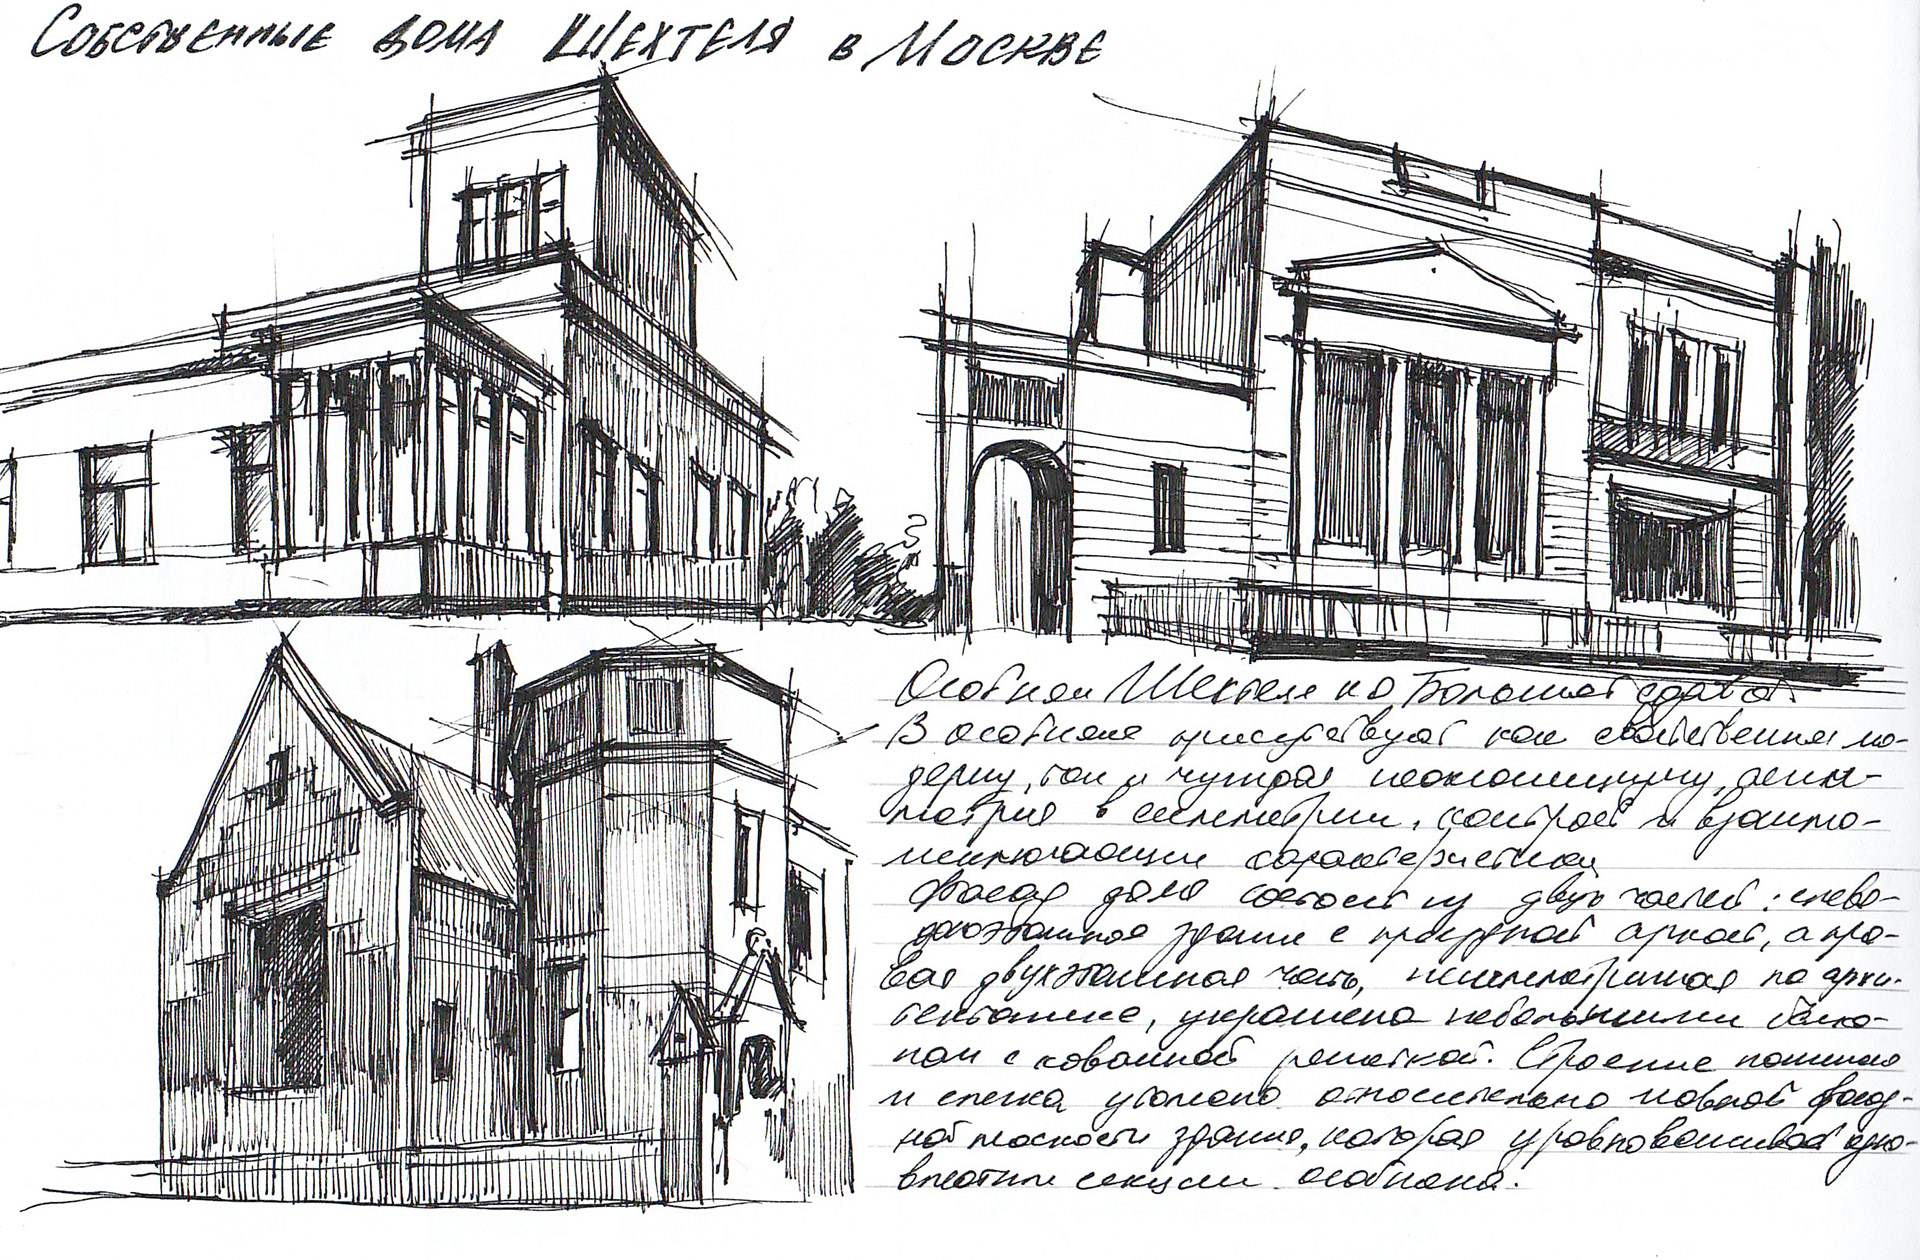 Собственные дома Шехтеля в Москве
Особняк Шехтеля на Большой Садовой
В особняке присутствуют как свойственная мо-
дерну, так и чуждая неоклассицизму, асим-
метрия в симметрии, контраст и взаимо-
исключающие характеристики
Фасад дома состоит из двух частей: слева-
одноэтажное здание с проездной аркой, а пра-
вая двухэтажная часть, несимметричная по архи-
тектонике, украшена небольшим балко-
ном с кованной решеткой. Строение
и слегка утоплено относительно главной фасад-
ной плоскости здания, которая уравновешивает
секции особняка.